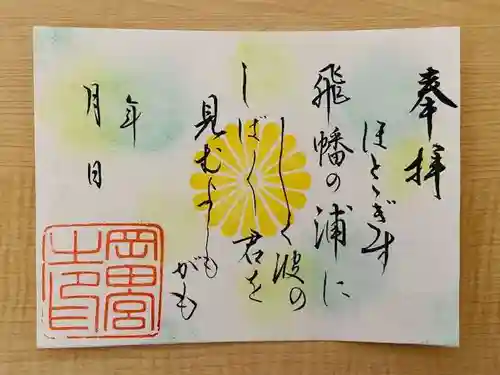 奉拝
ほとゝぎす
飛幡の浦に
しく波の
しば〱君を
見むよしも
がも
年
月日
岡田宮
之印